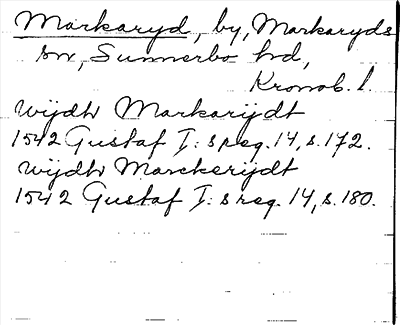 Markaryd, by, Markaryds
sn, Sunnerbo hd,
Kronob. l.
wijdh Markarijdt
1542 Gustaf I:s reg. 14, s. 172.
wijdh Marckerijdt
1542 Gustaf I:s reg. 14, s. 180.